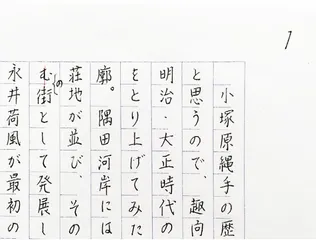 1
小塚原縄手の歴
と思うので、趣向
明治・大正時代の
をとり上げてみた
廓。隅田河岸には
荘地が並び、その
む街として発展し
永井荷風が最初の